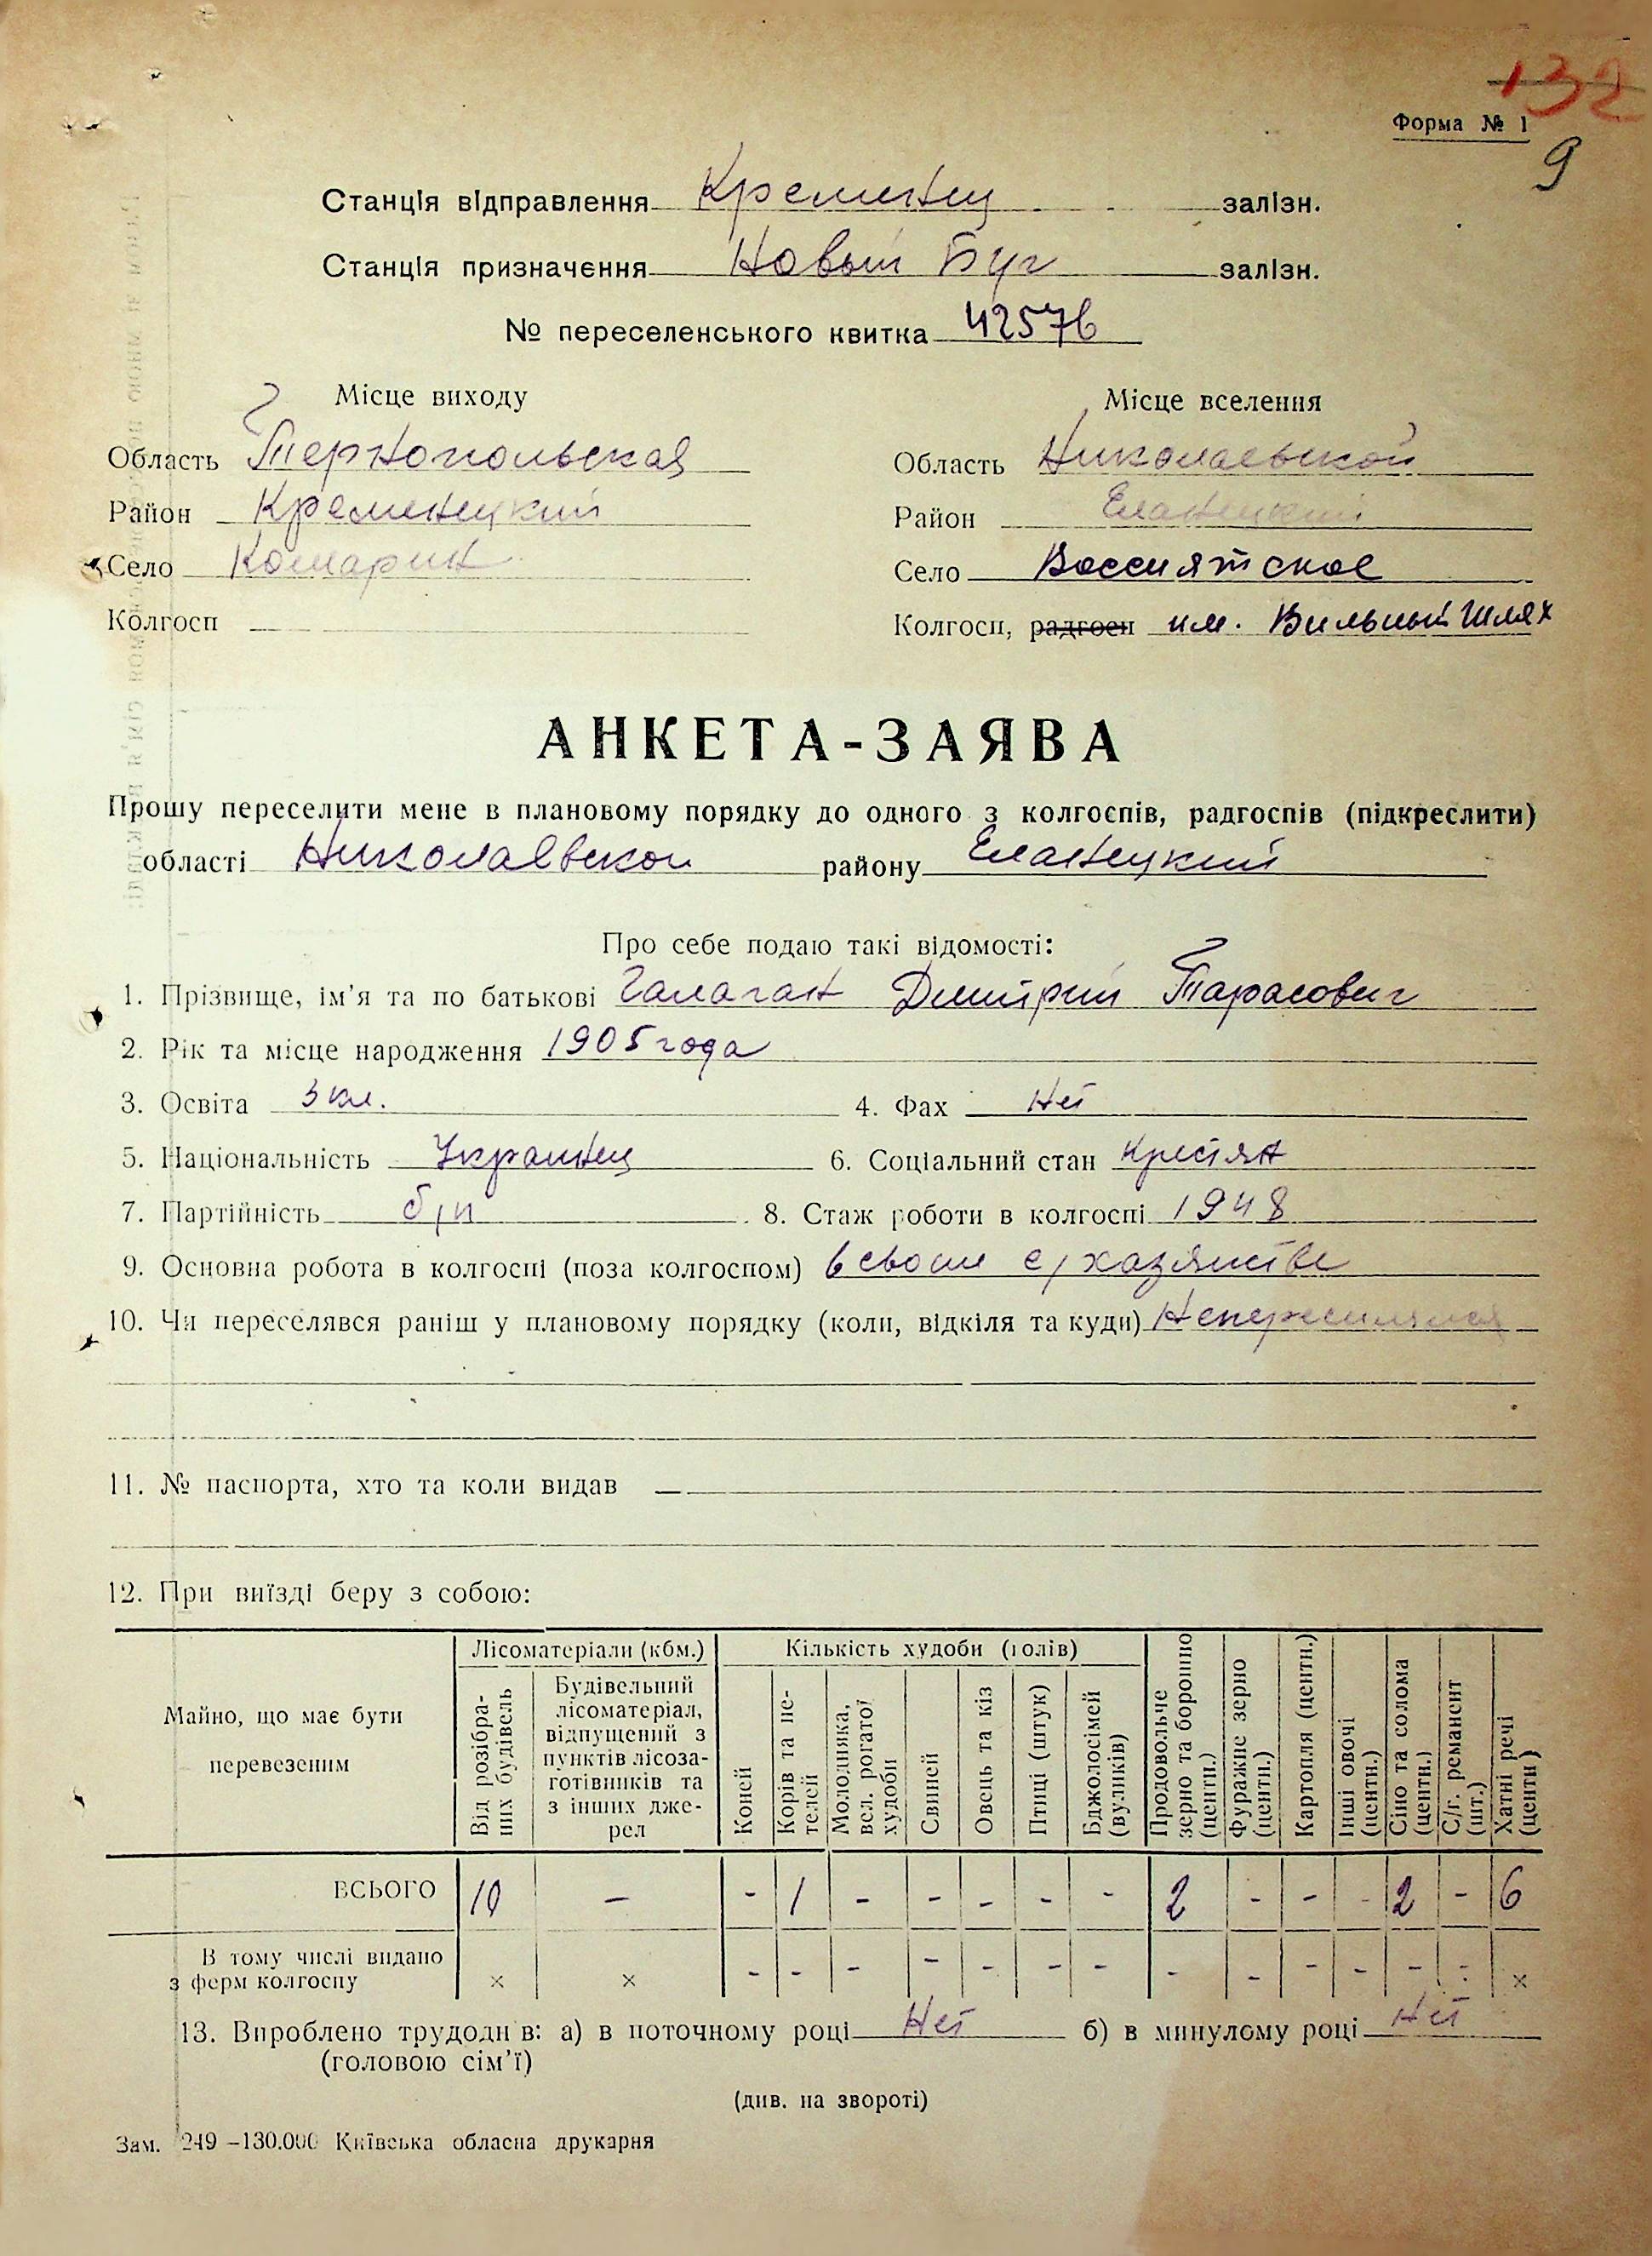 132
Форма № 1
9
Станція відправлення Кременец залізн.
Станція призначення Новый Буг залізн.
№ переселенського квитка 42576
Місце виходу
Місце вселення
Область Тернопольская
Область Николаевской
Район Кременецкий
Район Еланецкий
Село Комарин
Село Вассиятское
Колгосп —
Колгосп, радгосп им. Вильный Шлях
АНКЕТА-ЗАЯВА
Прошу переселити мене в плановому порядку до одного з колгоспів, радгоспів (підкреслити)
області Николаевской району Еланецкий
Про себе подаю такі відомості:
1. Прізвище, ім'я та по батькові Галаган Дмитрий Тарасович
2. Рік та місце народження 1905 года
3. Освіта 3 кл. 4. Фах Нет
5. Національність Украинец 6. Соціальний стан Крестян
7. Партійність б/п 8. Стаж роботи в колгоспі 1948
9. Основна робота в колгоспі (поза колгоспом) в своем с/хазяистве
10. Чи переселявся раніш у плановому порядку (коли, відкіля та куди) Непереселялся
11. № паспорта, хто та коли видав —
12. При виїзді беру з собою:
Майно, що має бути перевезеним
Лісоматеріали (кбм.)
Кількість худоби (голів)
Від розібраних будівель
Будівельний лісоматеріал, відпущений з пунктів лісозаготівників та з інших джерел
Коней
Корів та нетелей
Молодняка, вел. рогатої худоби
Свиней
Овець та кіз
Птиці (штук)
Бджолосімей (вуликів)
Продовольче зерно та борошно (центн.)
Фуражне зерно (центн.)
Картопля (центн.)
Інші овочі (центн.)
Сіно та солома (центн.)
С/г. реманент (шт.)
Хатні речі (центн)
ВСЬОГО 10 — - 1 - - - - - 2 - - - 2 - 6
В тому числі видано з ферм колгоспу × × - - - - - - - - - - - - - ×
13. Вироблено трудоднів: а) в поточному році Нет б) в минулому році Нет
(головою сім'ї)
(див. на звороті)
Зам. 249—130.000 Київська обласна друкарня